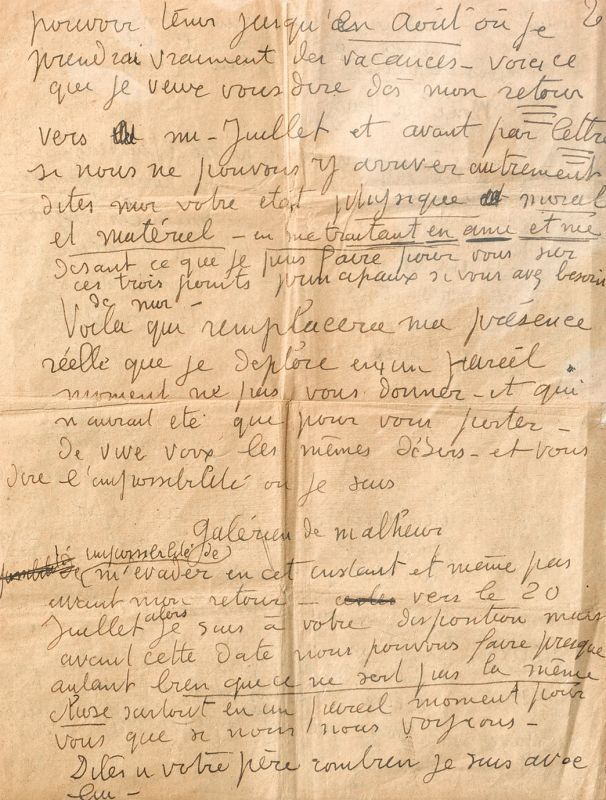 2
pouvoir tenir jusqu'en Août où je
prendrai vraiment des vacances – voici ce
que je veux vous dire dès mon retour
vers mi-Juillet et avant par lettre
si nous ne pouvons y arriver autrement
dites moi votre état physique moral
et matériel – en me traitant en amie et me
disant ce que je puis faire pour vous sur
ces trois points principaux si vous avez besoin
de moi –
Voilà qui remplacera ma présence
réelle que je déplore en un pareil
moment ne pas vous donner – et qui
n'aurait été que pour vous porter –
de vive voix les mêmes désirs – et vous
dire l'impossibilité où je suis
galérien de malheur
impossibilité de
m'évader en cet instant et même pas
avant mon retour – vers le 20
Juillet alors je suis à votre disposition mais
avant cette date nous pouvons faire presque
autant bien que ce ne soit pas la même
chose surtout en un pareil moment pour
vous que si nous nous voyions –
Dites à votre père combien je suis avec
lui –